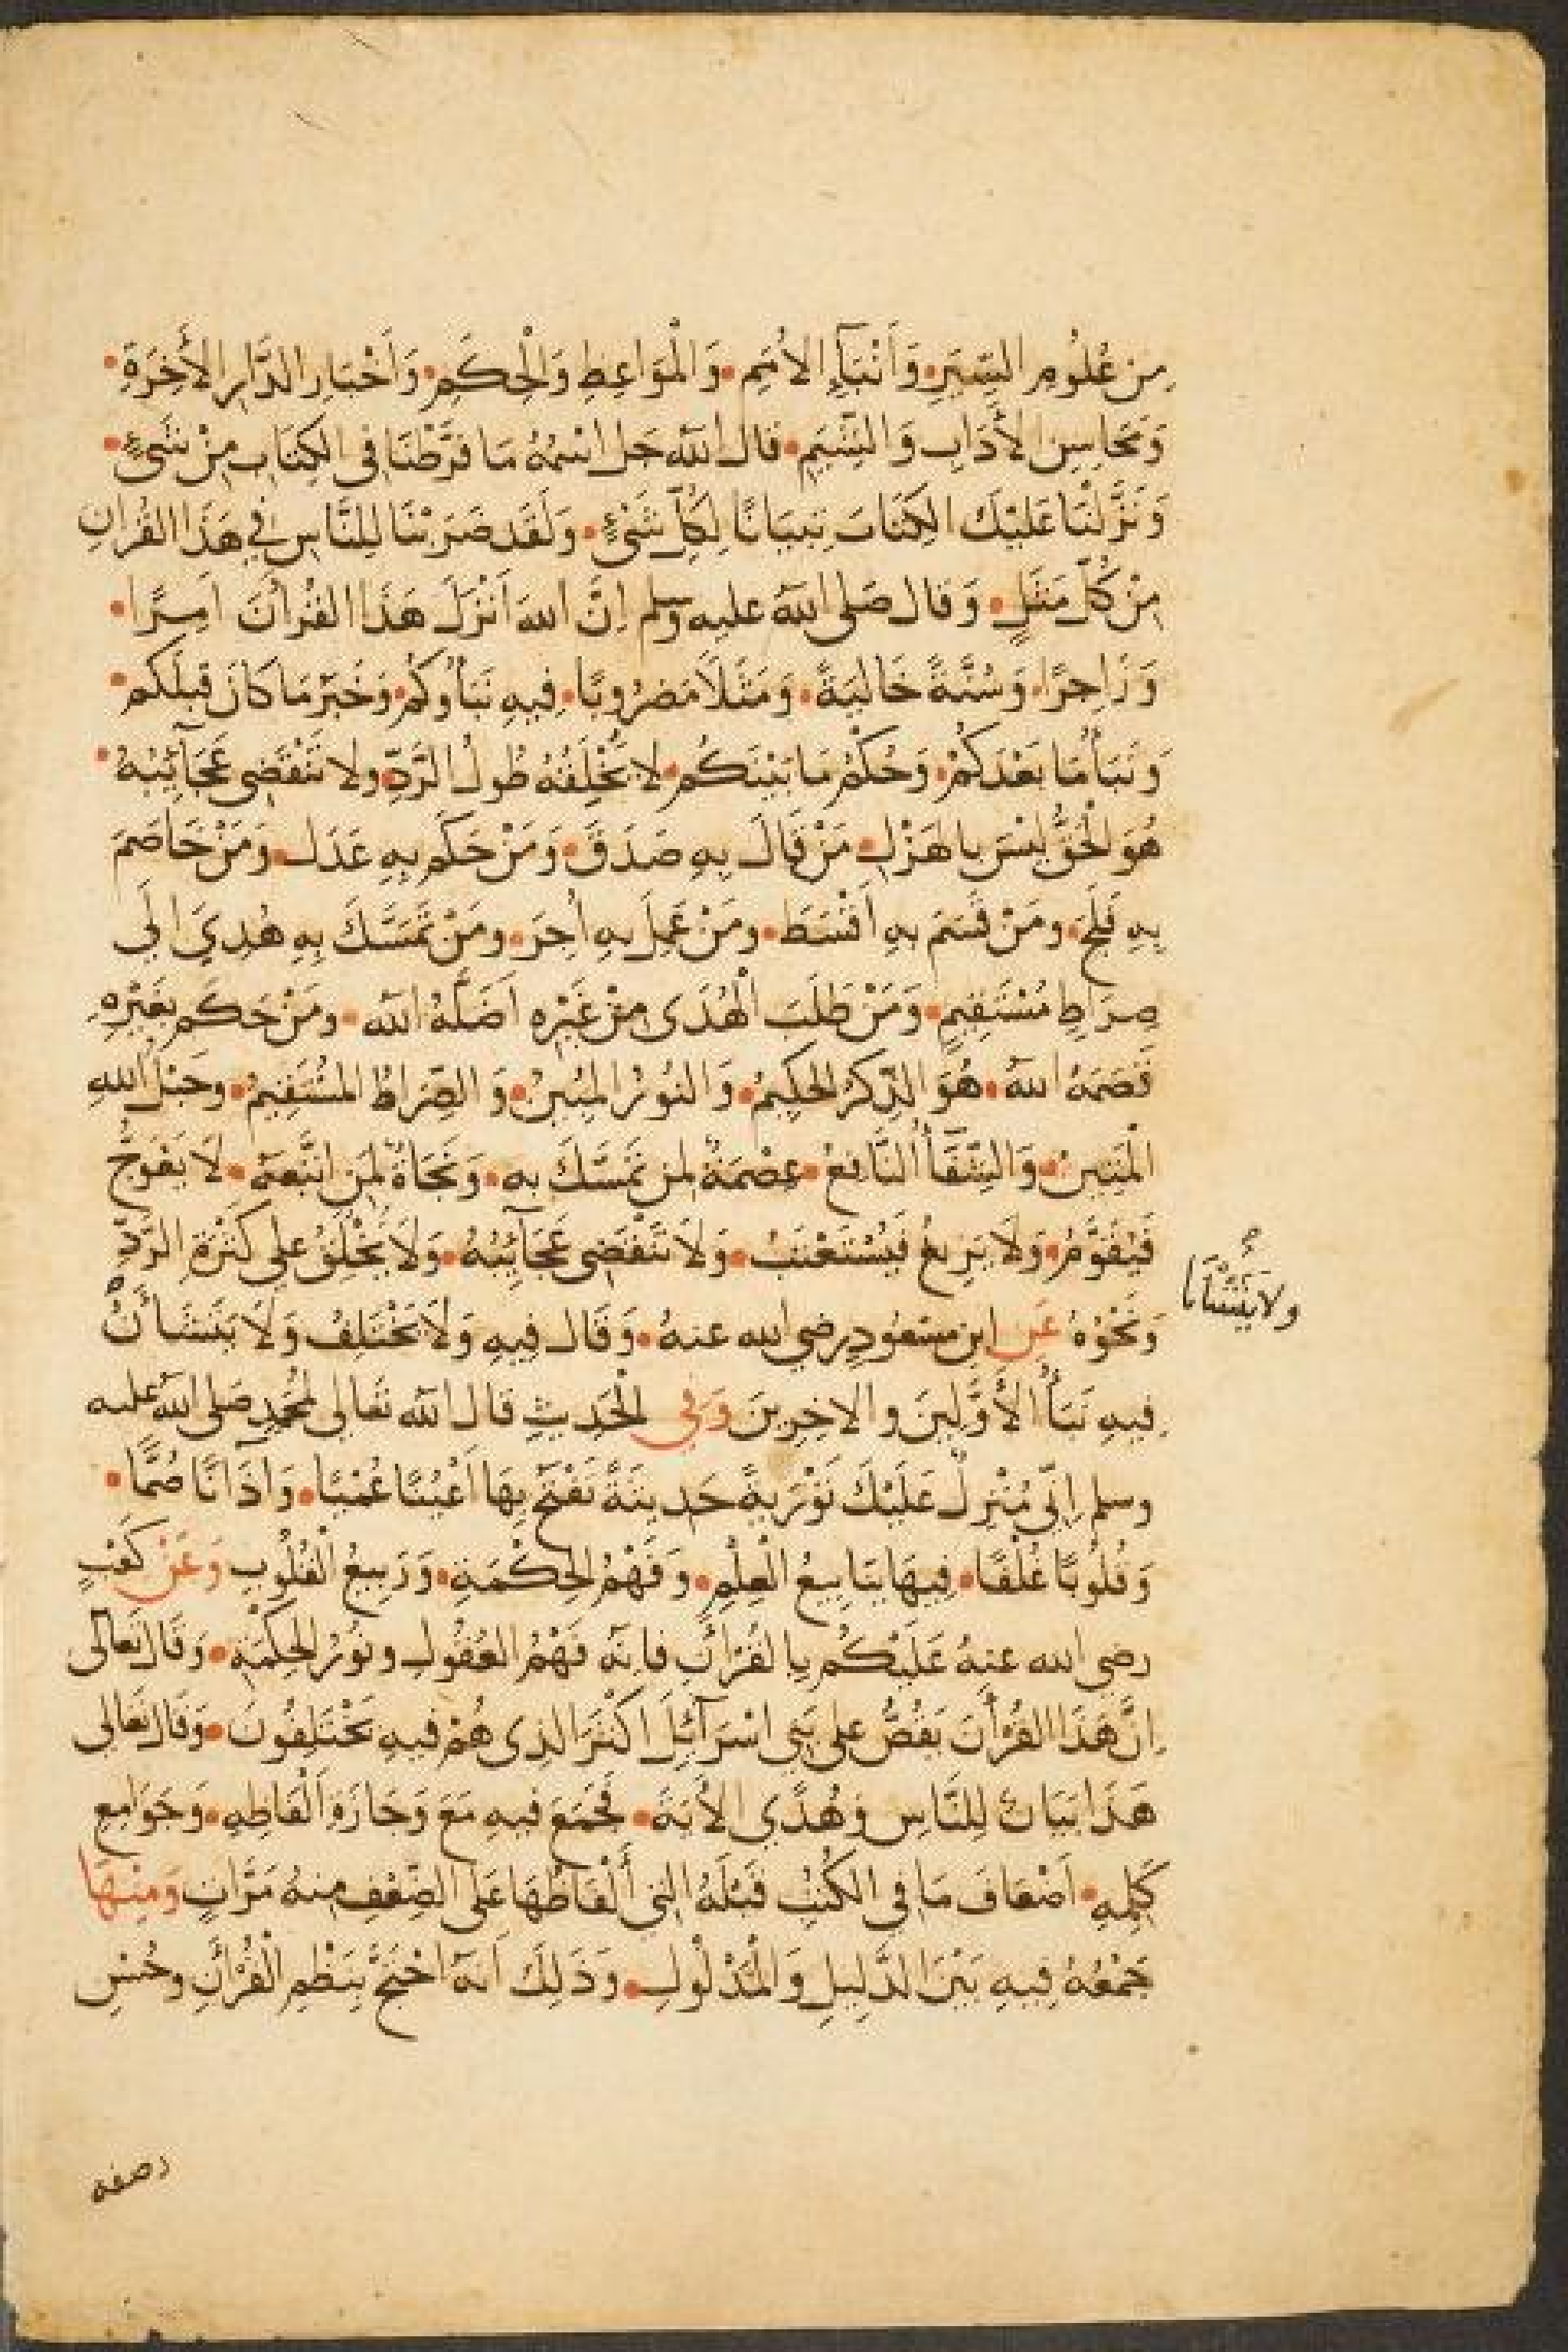 مِن عُلُومِ السِّيَرِ • وَأَنْبَآءِ الأُمَمِ • وَالْمَوَاعِظِ وَالْحِكَمِ • وَأَخْبَارِ الدَّارِ الأٰخِرَةِ •
وَمَحَاسِنِ الأٰدَابِ وَالشِّيَمِ • قال اللهُ جَل اسْمُهُ مَا فَرَّطْنَا فى الكِتَابِ مِنْ شَىْءٍ •
وَنَزَّلْنَا عَلَيْكَ الكِتَابَ تِبيَانًا لِكُلِّ شَىْءٍ • وَلَقَد ضَرَبْنَا لِلنَّاسِ فِي هَذَا القُرانِ
مِنْ كُلِّ مَثَلٍ • وَقال صَلى اللهُ عليه وسلم اِنَّ اللهَ اَنْزَلَ هَذَا القُرْاٰنَ اٰمِرًا •
وَزَاجِرًا • وَسُنَّةً خَالِيَةً • وَمَثَلاً مَضْرُوبًا • فِيهِ نَبَأُوكُم • وَخَبَرُ مَا كَانَ قَبْلَكُم •
وَنَبَأُ مَا بَعْدَكُمْ • وَحُكْمُ مَا بَيْنَكُم • لا يُخْلِقُهُ طُولُ الرَّدِّ • ولا تَنْقَضِى عَجَآئِبُهُ •
هُوَ الْحَقُّ لَيْسَ بِالهَزْلِ • مَنْ قَالَ بِهِ صَدَقَ • وَمَنْ حَكَم بِهِ عَدَل • وَمَنْ خَاصَمَ
بِهِ فَلَجَ • ومَنْ قَسَمَ بِهِ اَقْسَطَ • ومَنْ عَمِلَ بِهِ اُجِرَ • ومَنْ تَمَسَّكَ بِهِ هُدِيَ الٰى
صِرَاطٍ مُسْتَقِيمٍ • وَمَنْ طَلَبَ الْهُدَى مِنْ غَيْرِهِ اَضَلَّهُ اللهُ • ومَنْ حَكَم بِغَيْرِهِ
قَصَمَهُ اللهُ • هُوَ الذِّكْرُ الحَكِيمُ • وَالنُّورُ المُبِينُ • وَالصِّرَاطُ المُسْتَقِيمُ • وحَبْلُ اللهِ
الْمَتِينُ • وَالشِّفَآءُ النَّافِعُ • عِصْمَةٌ لِمَن تَمَسَّكَ بِهِ • وَنَجَاةٌ لِمَنِ اتَّبَعَهُ • لاَ يَعْوَجُّ
فَيُقَوَّمُ • وَلاَ يَزِيغُ فَيُسْتَعْتَبُ • وَلاَ تَنْقَضِى عَجَآئِبُهُ • وَلاَ يَخْلَقُ على كَثْرَةِ الرَّدِّ
وَنَحْوُهُ عَن ابن مسعُودٍ رضي الله عنهُ • وَقَال فِيهِ وَلاَ يَخْتَلِفُ وَلاَ يَتَشَأنُّ
ولا يَتَشَانَّا
فِيهِ نَبَأُ الأَوَّلِينَ والاخِرِينَ وَفى الْحَدِيثِ قال اللهُ تعَالى لِمُحَمدٍ صَلى اللهُ عليه
وسلم اِنِّى مُنْزِلٌ عَلَيْكَ تَوْرٰيةً حَدِيثَةً تَفْتَحُ بِهَا اَعْيُنًا عُمْيًا • وَاٰذَانًا صُمًّا •
وَقُلُوبًا غُلْفًا • فِيهَا يَنَابِيعُ الْعِلْمِ • وَفَهْمُ الحِكْمَةِ • وَرَبِيعُ القُلُوبِ وَعَنْ كَعْبٍ
رضي الله عنهُ عَلَيْكُم بِالقُرْاٰنِ فاِنَّهُ فَهْمُ العُقُولِ ونُورُ الحِكْمَةِ • وَقَال تَعَالى
اِنَّ هَذَا القُرْاٰنَ يَقُصُّ على بَنِى اسْرَآئِلَ اكْثَرَ الذِى هُمْ فيهِ يَخْتَلِفُونَ • وَقَال تَعَالى
هَذَا بَيَانٌ لِلنَّاسِ وَهُدًى الأٰيَةَ • فَجُمِعَ فيهِ مَعَ وَجَازَةِ اَلْفَاظِهِ • وَجَوَامِعِ
كَلِمِهِ • اَضْعَافُ مَا فى الكُتُبِ قَبْلَهُ التِى أَلْفَاظُهَا عَلى الضِّعْفِ مِنهُ مَرَّاتٍ وَمِنْهَا
جَمْعُهُ فِيهِ بَيْنَ الدَّلِيلِ وَالْمَدْلُولِ • وَذَلِكَ اَنَّهُ احْتَجَّ بِنَظْمِ الْقُرْاٰنِ وحُسْنِ
رصفه